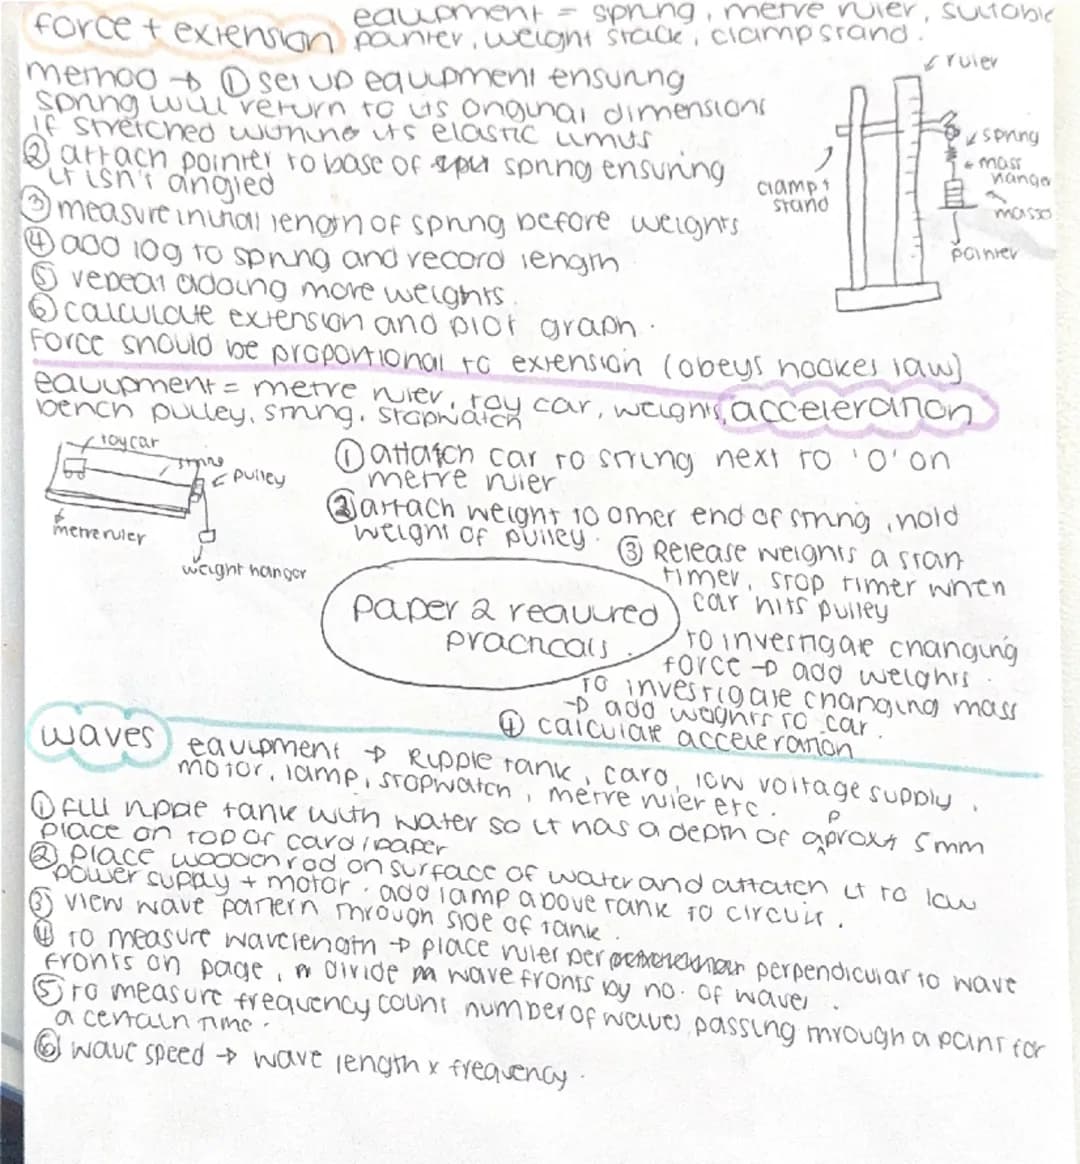 force + extension
equipment = spring, metre ruler, suitable
pointer, weight stack, clamp stand.
method → ① set up equipment ensuring
spring will return to its original dimensions
if stretched within its elastic limits
② attach pointer to base of spring ensuring
it isn't angled
③ measure initial length of spring before weights
④ add 10g to spring and record length
⑤ repeat adding more weights.
⑥ calculate extension and plot graph.
Force should be proportional to extension (obeys hookes law)
ruler
spring
mass
hanger
masses
pointer
clamp +
stand
equipment = metre ruler, toy car, weights,
bench pulley, string, stopwatch
acceleration
toy car
string
pulley
metre ruler
weight hanger
① attatch car to string next to 'O' on
metre ruler
② attach weight to other end of string, hold
weight of pulley.
③ Release weights a start
timer, stop timer when
car hits pulley
to investigate changing
force → add weights.
TO investigate changing mass
→ add weights to car.
④ calculate acceleration
paper 2 required
practicals
waves
equipment → Ripple tank, card, low voltage supply,
motor, lamp, stopwatch, metre ruler etc.
① fill ripple tank with water so it has a depth of aprox 5mm
place on top of card/paper
② place wooden rod on surface of water and attatch it to low
power supply + motor. add lamp above tank to circuit.
③ view wave pattern through side of tank.
④ to measure wavelength → place ruler perpendicular to wave
fronts on page, divide wave fronts by no. of waves.
⑤ to measure frequency count number of waves passing through a point for
a certain time.
⑥ wave speed → wave length x frequency.